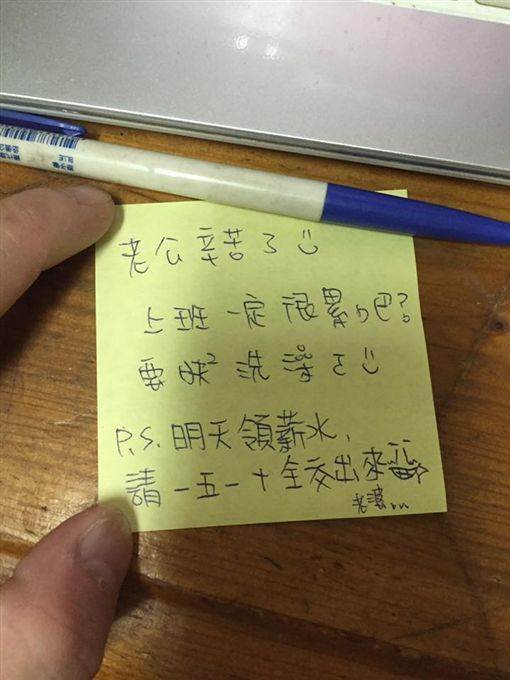 老公辛苦了
上班一定很累ㄅ吧?
要快洗澡ㄛ
P.S.明天領薪水,
請一五一十全交出來
老婆...